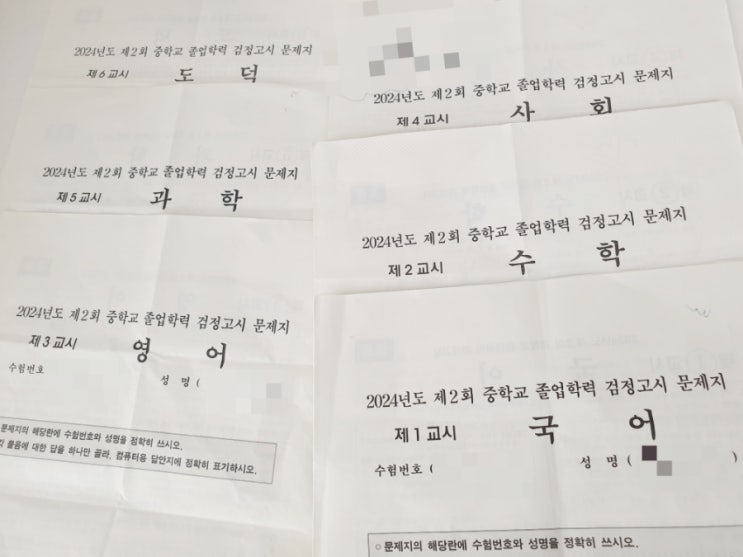 2024년도 제2회 중학교 졸업학력 검정고시 문제지
제6교시 도 덕
2024년도 제2회 중학교 졸업학력 검정고시 문제지
제4교시 사 회
2024년도 제2회 중학교 졸업학력 검정고시 문제지
제5교시 과 학
2024년도 제2회 중학교 졸업학력 검정고시 문제지
제2교시 수 학
2024년도 제2회 중학교 졸업학력 검정고시 문제지
제3교시 영 어
수험번호 성 명 (
문제지의 해당란에 수험번호와 성명을 정확히 쓰시오.
물음에 대한 답을 하나만 골라, 컴퓨터용 답안지에 정확히 표기하시오.
2024년도 제2회 중학교 졸업학력 검정고시 문제지
제1교시 국 어
수험번호 ( 성 명 ( )
○ 문제지의 해당란에 수험번호와 성명을 정확히 쓰시오.